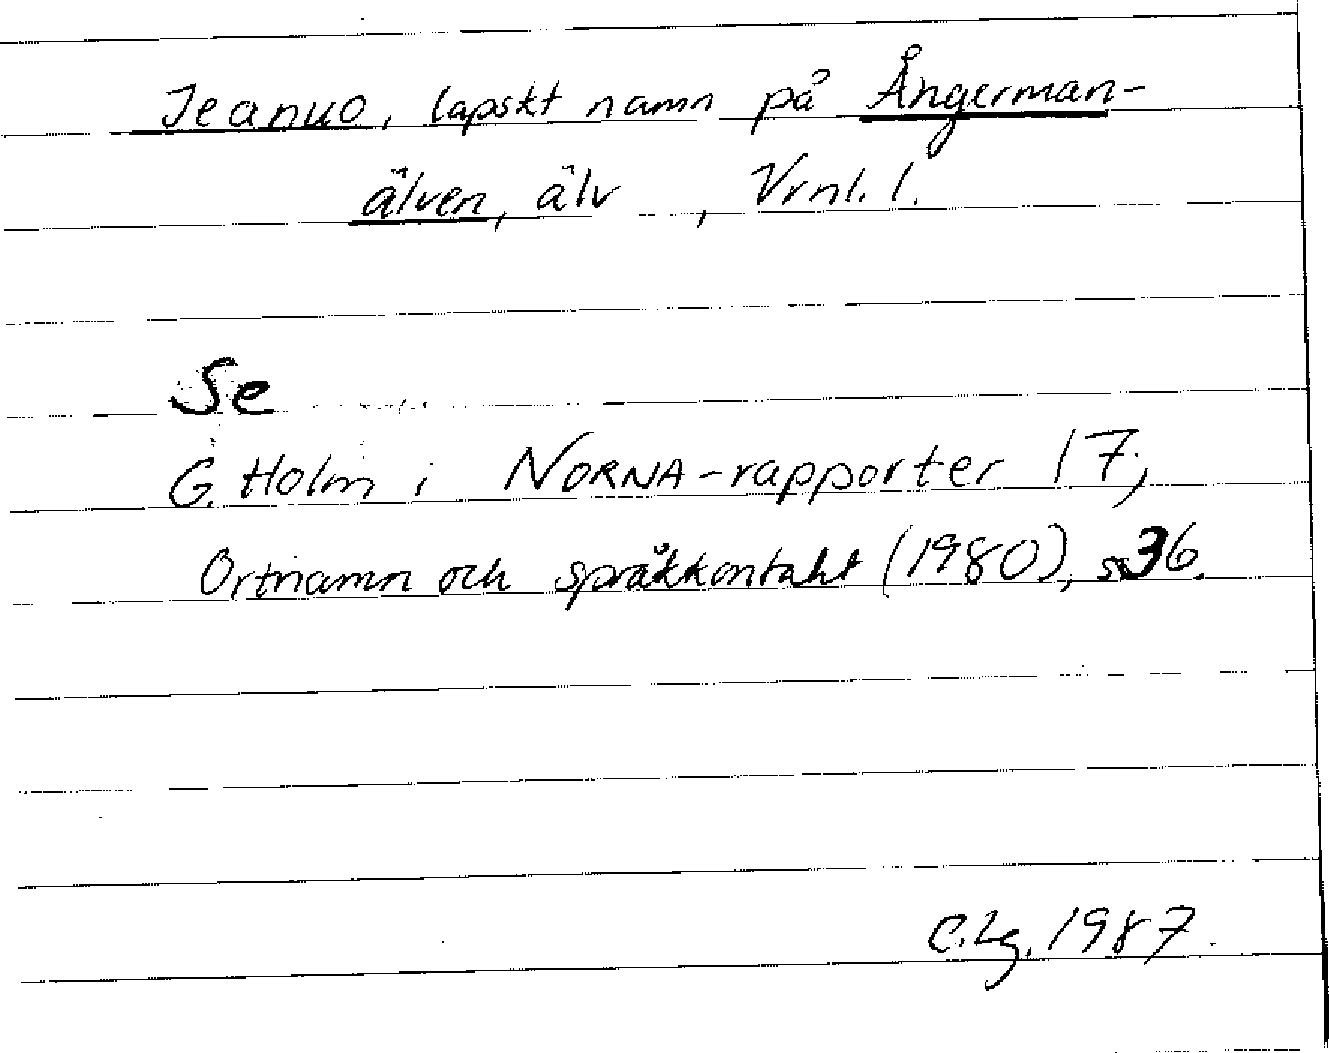 Jeanuo, lapskt namn på Ångerman-
älven, älv , Vrnl. l.
Se
G. Holm i NORNA-rapporter 17;
Ortnamn och språkkontakt (1980), s 36.
C. Lg. 1987.